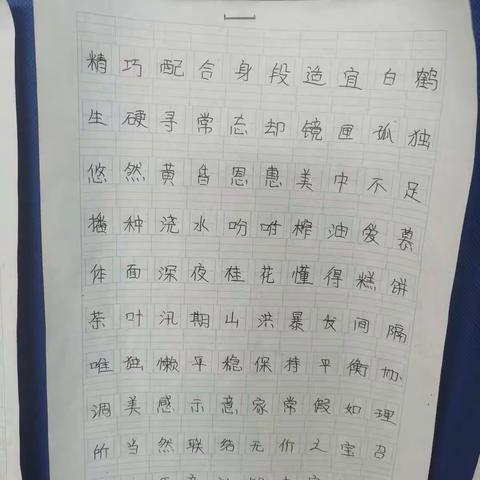 精巧配合身段适宜白鹤
生硬寻常态却镜匣孤独
悠然黄昏恩惠美中不足
播种浇水吩咐榨油爱慕
体面深夜桂花懂得糕饼
茶叶汛期山洪暴发间隔
唯独懒平稳保持平衡协
调美感示意家常假如理
所当然联结无价之宝召